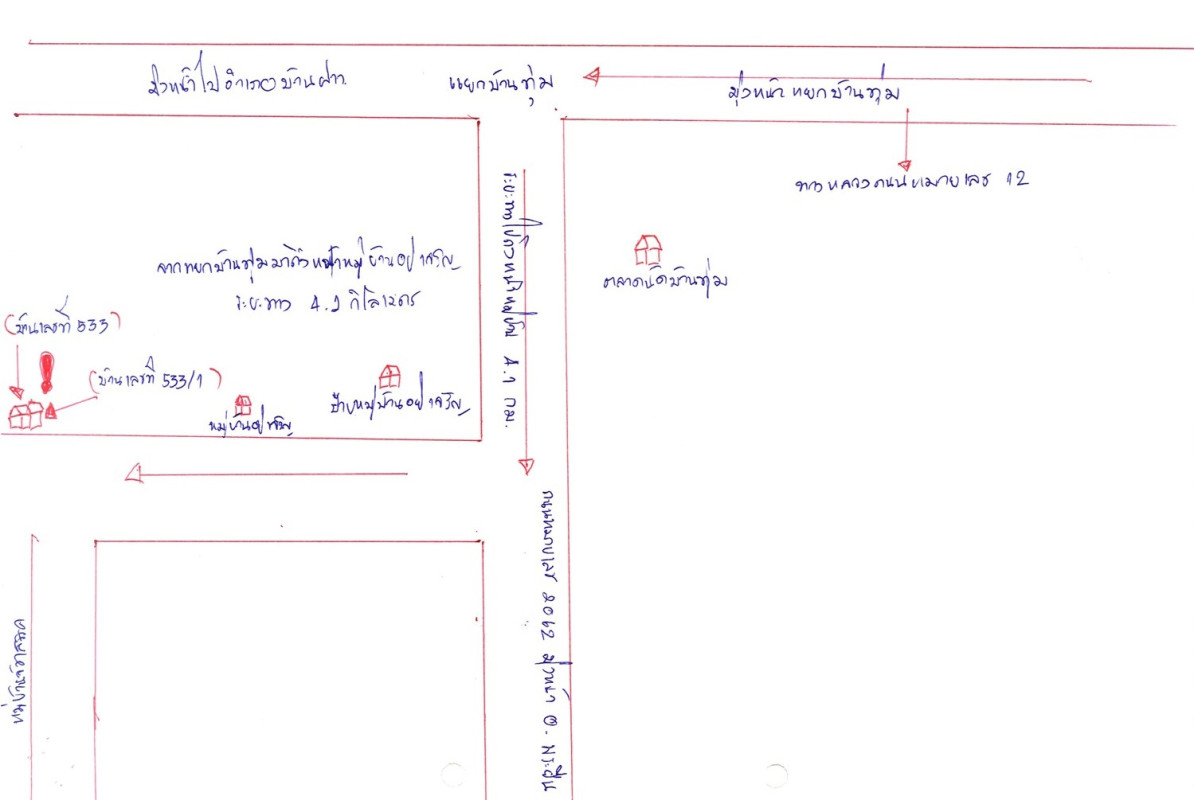 มุ่งหน้าไปอำเภอบ้านฝาง
แยกบ้านทุ่ม
มุ่งหน้าแยกบ้านทุ่ม
ทางหลวงถนนหมายเลข 12
ระยะทางไปถึงหน้าหมู่บ้าน 4.1 กม.
จากแยกบ้านทุ่มมาถึงหน้าหมู่บ้านอยู่เจริญ
ระยะทาง 4.1 กิโลเมตร
ตลาดนัดบ้านทุ่ม
(บ้านเลขที่ 533)
(บ้านเลขที่ 533/1)
ป้ายหมู่บ้านอยู่เจริญ
หมู่บ้านอยู่เจริญ
ถนนหมายเลข 2062 มุ่งหน้า อ. พระยืน